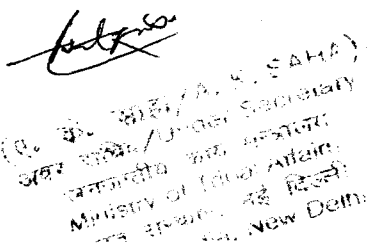 (ए. के. साहा/A. K. SAHA)
अवर सचिव/Under Secretary
जनजातीय कार्य मन्त्रालय
Ministry of Tribal Affairs
सरकार, नई दिल्ली
New Delhi